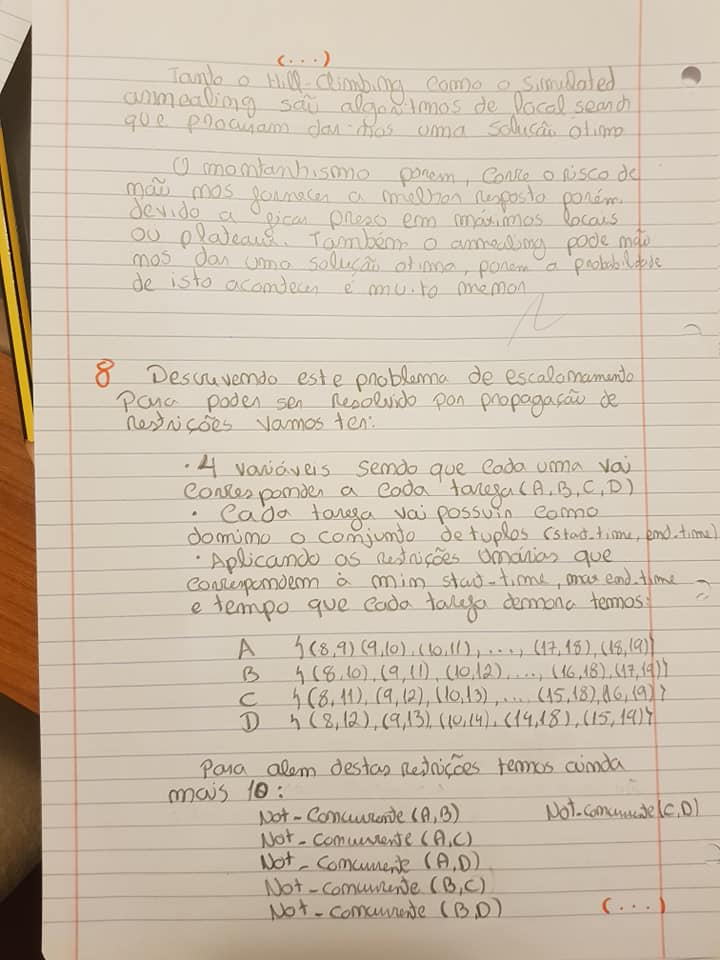 (...)
Tanto o Hill-Climbing como o simulated
annealing são algoritmos de local search
que procuram dar-nos uma solução otima
O montanhismo porem, corre o risco de
não nos fornecer a melhor resposta porém
devido a ficar preso em máximos locais
ou plateaus. Também o annealing pode não
nos dar uma solução otima, porem a probabilidade
de isto acontecer é muito menor
8 Descrevendo este problema de escalonamento
Para poder ser resolvido por propagação de
restrições vamos ter:
• 4 variáveis sendo que cada uma vai
corresponder a cada tarefa (A,B,C,D)
• Cada tarefa vai possuir como
dominio o conjunto de tuplos (start_time, end_time)
• Aplicando as restrições Unárias que
correspondem à min start-time, max end_time
e tempo que cada tarefa demora temos:
A {(8,9) (9,10), (10,11), ..., (17,18), (18,19)}
B {(8,10), (9,11), (10,12), ..., (16,18), (17,19)}
C {(8,11), (9,12), (10,13), ... (15,18), (16,19)}
D {(8,12), (9,13), (10,14), (14,18), (15,19)}
Para alem destas restrições temos ainda
mais 10:
Not-Concurrente (A,B) Not-concurrente (C,D)
Not-concurrente (A,C)
Not-concurrente (A,D)
Not-concurrente (B,C)
Not-concurrente (B,D) (...)